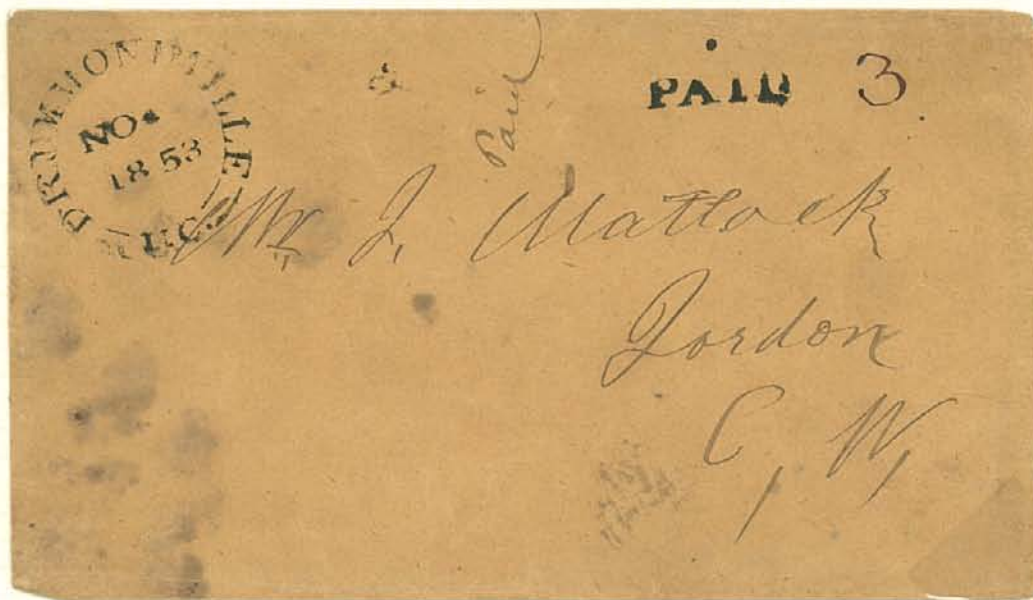 DRUMMONDVILLE
NO.
1853
U.C.
Paid
PAID 3
Mr J, Matlock
Jordon
C, W,